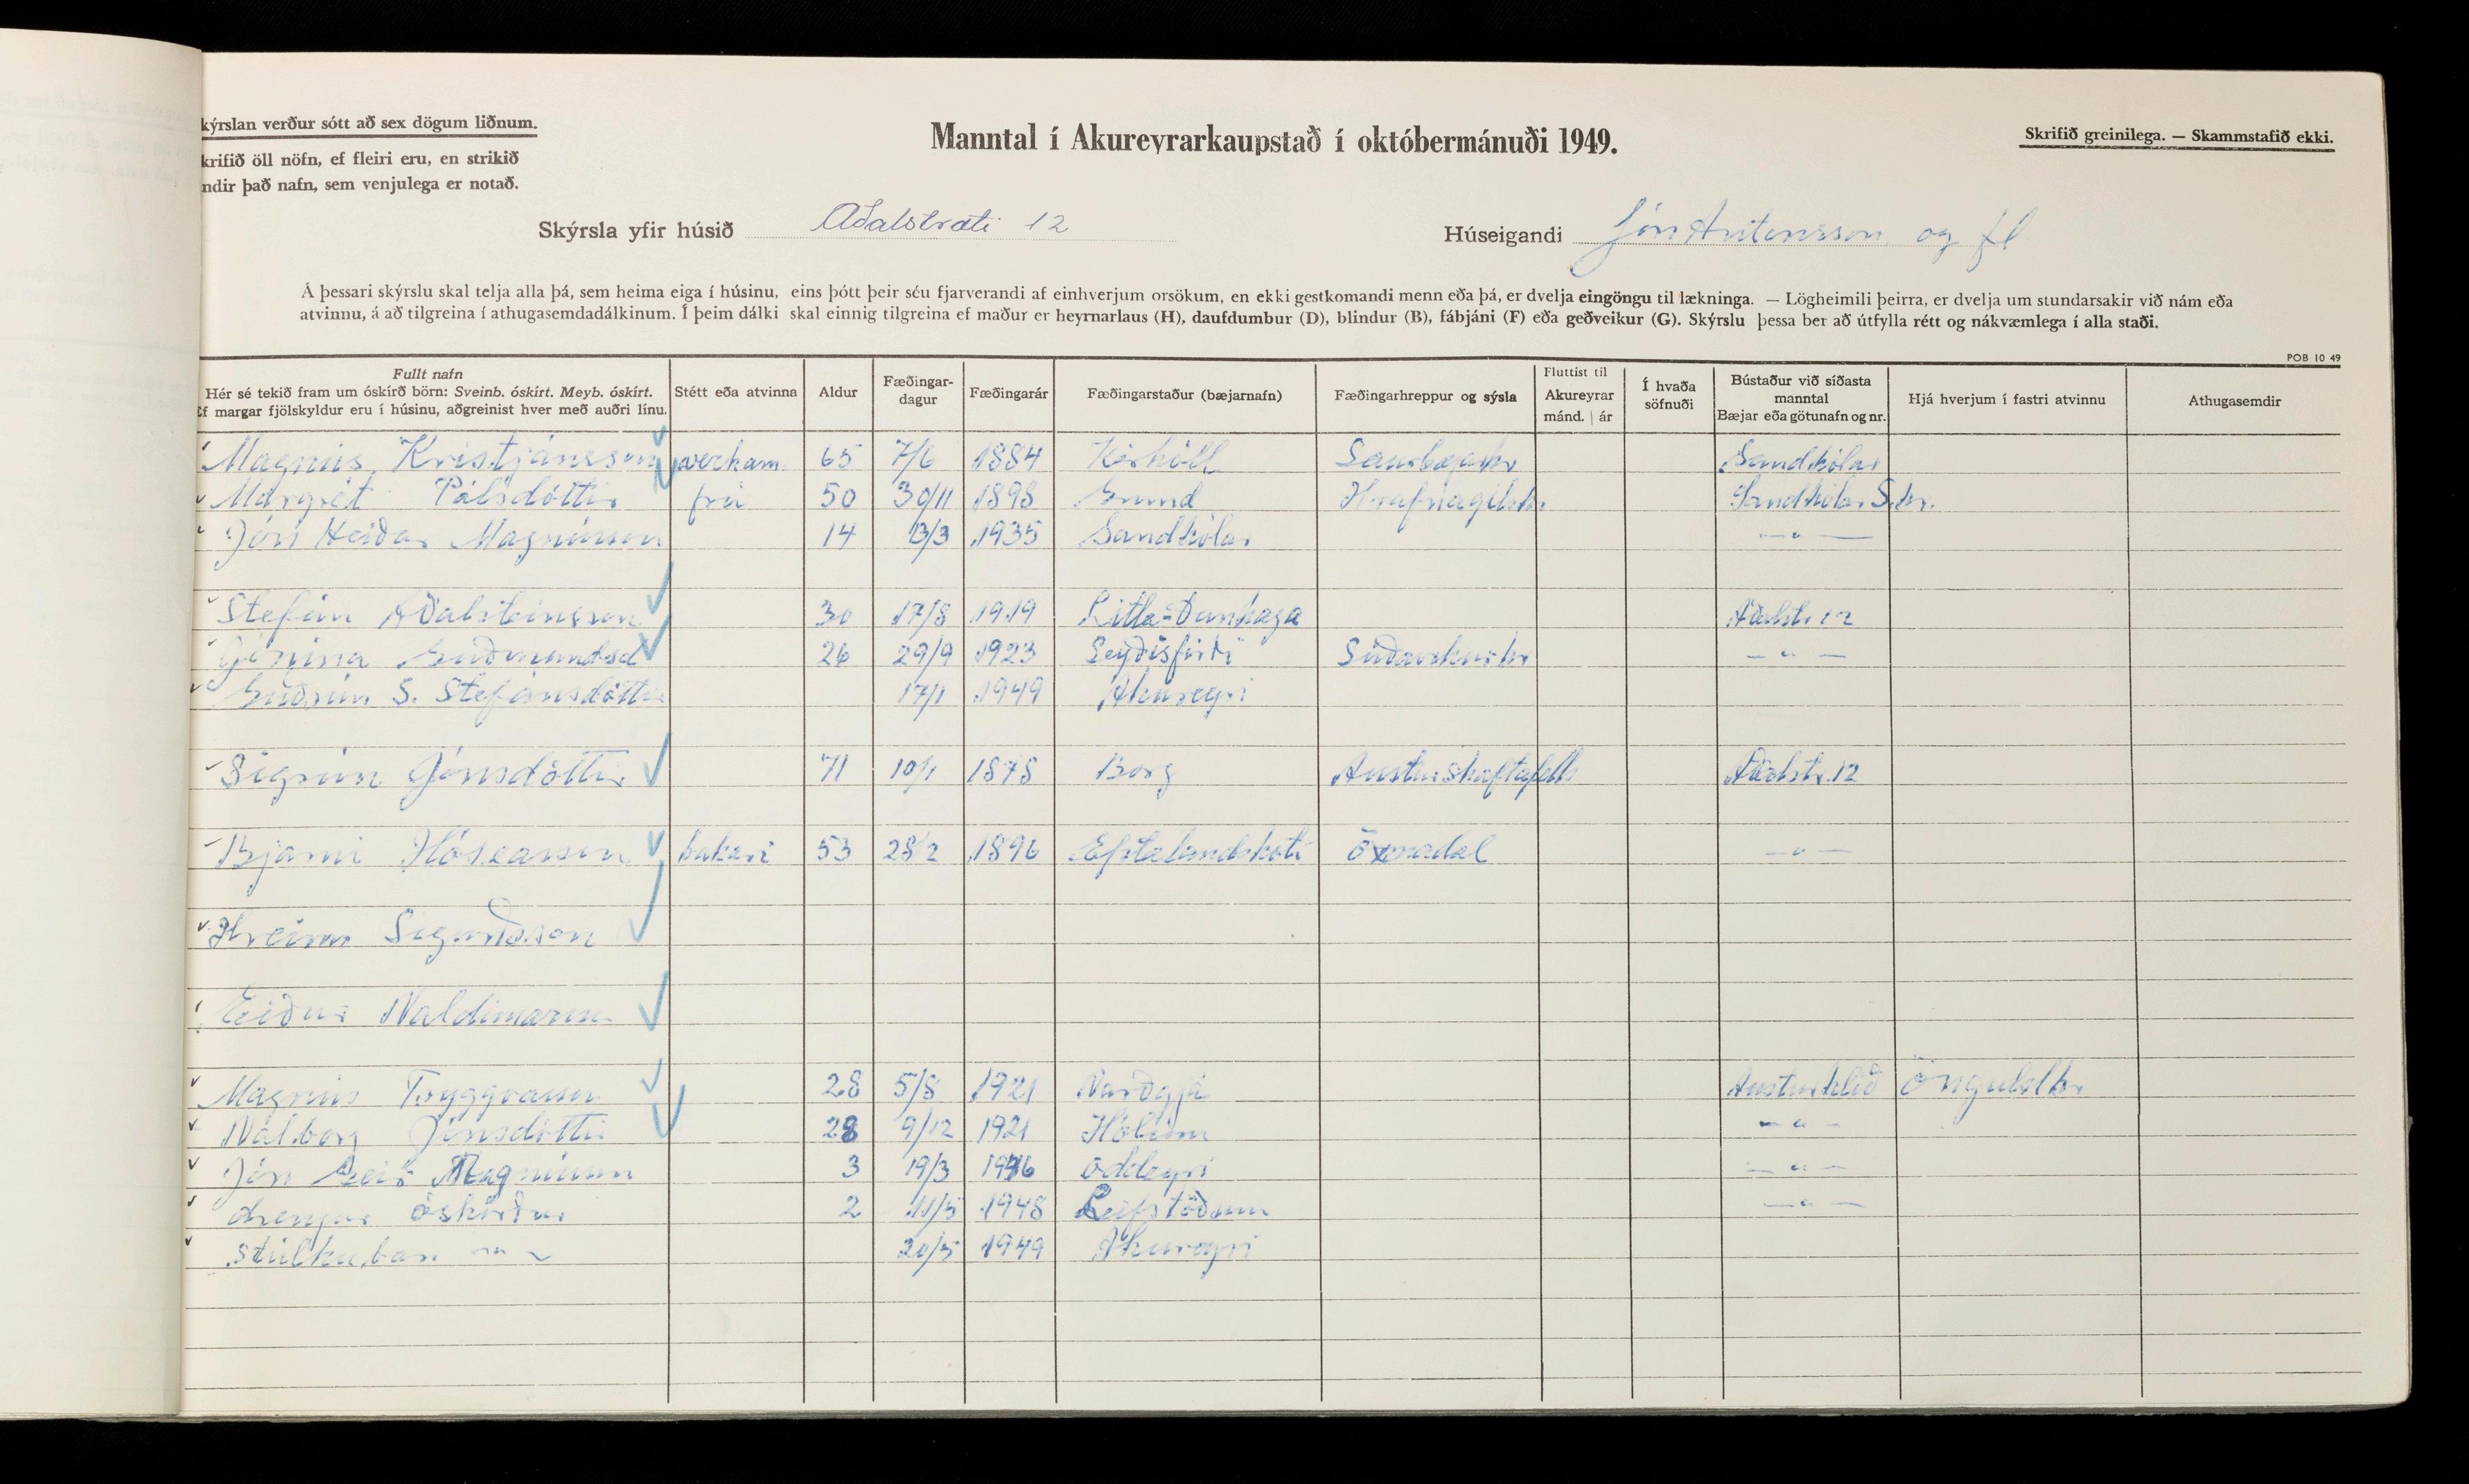 kýrslan verður sótt að sex dögum liðnum.
krifið öll nöfn, ef fleiri eru, en strikið
ndir það nafn, sem venjulega er notað.
Manntal í Akureyrarkaupstað í októbermánuði 1949.
Skrifið greinilega. — Skammstafið ekki.
Skýrsla yfir húsið Aðalstræti 12 Húseigandi Jón Antonsson og fl
Á þessari skýrslu skal telja alla þá, sem heima eiga í húsinu, eins þótt þeir séu fjarverandi af einhverjum orsökum, en ekki gestkomandi menn eða þá, er dvelja eingöngu til lækninga. — Lögheimili þeirra, er dvelja um stundarsakir við nám eða
atvinnu, á að tilgreina í athugasemdadálkinum. Í þeim dálki skal einnig tilgreina ef maður er heyrnarlaus (H), daufdumbur (D), blindur (B), fábjáni (F) eða geðveikur (G). Skýrslu þessa ber að útfylla rétt og nákvæmlega í alla staði.
POB 10 49
Fullt nafn
Hér sé tekið fram um óskírð börn: Sveinb. óskírt. Meyb. óskírt.
Ef margar fjölskyldur eru í húsinu, aðgreinist hver með auðri línu.
Stétt eða atvinna
Aldur
Fæðingar-
dagur
Fæðingarár
Fæðingarstaður (bæjarnafn)
Fæðingarhreppur og sýsla
Fluttist til
Akureyrar
mánd. | ár
Í hvaða
söfnuði
Bústaður við síðasta
manntal
Bæjar eða götunafn og nr.
Hjá hverjum í fastri atvinnu
Athugasemdir
Magnús Kristjánsson verkam. 65 7/6 1884 Saurbæjarhr Sandhólar
Margrét Pálsdóttir frú 50 30/11 1898 Grund Hrafnagilshr. Sandhólar S.hr.
Jón Heiðar Magnússon 14 13/3 1935 Sandhólar — " —
Stefán Aðalsteinsson 30 17/8 1919 Litla-Dunhaga Aðalstr. 12
Jónína Guðmundsd 26 29/9 1923 Seyðisfirði Súðavíkurhr — " —
Guðrún S. Stefánsdóttir 17/1 1949 Akureyri
Sigrún Jónsdóttir 71 10/1 1878 Borg Austurskaftafells Aðalstr. 12
Bjarni Hóseasson bakari 53 28/2 1896 Eftalandskoti Öxnadal — " —
Hreinn Sigurðsson
Eiður Valdimarss
Magnús Tryggvason 28 5/8 1921 Varðgjá Austurhlíð Öngulsthr
Valborg Jónsdóttir 28 9/12 1921 Hólum — " —
Jón Geir Magnússon 3 19/3 1946 Oddeyri — " —
drengur óskírður 2 11/5 1948 Leifstöðum — " —
stúlkubarn — " — 20/5 1949 Akureyri